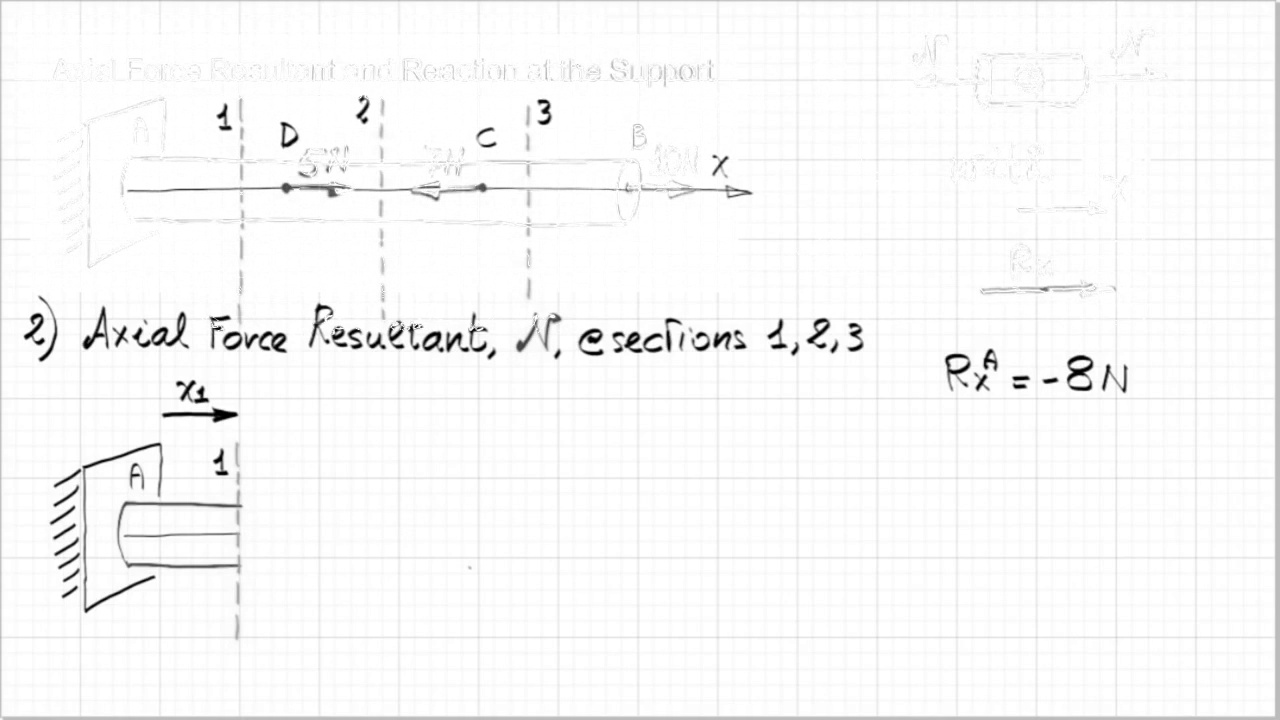 Axial Force Resultant and Reaction at the Support
N N
1 2 3
A D 5N C B 10N X
Rx
2) Axial Force Resultant, N, @sections 1,2,3
RxA = -8N
x1
A 1